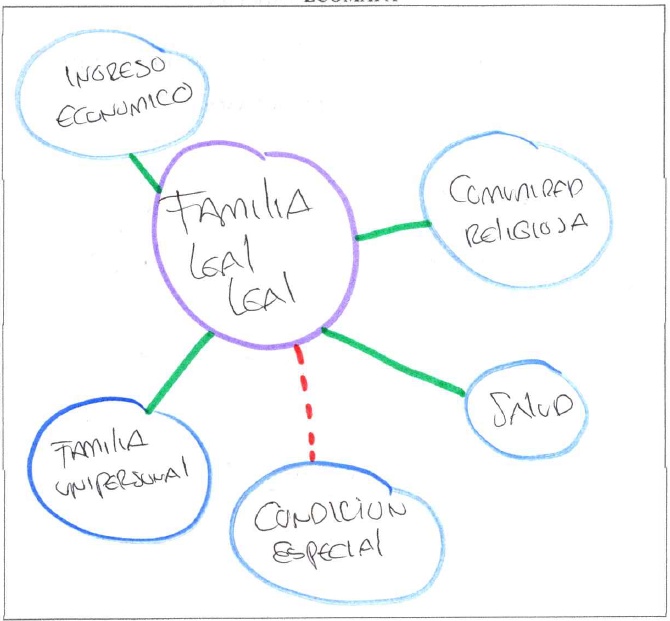 ECOMAPA
INGRESO
ECONOMICO
FAMILIA
LEAL
LEAL
COMUNIDAD
RELIGIOSA
SALUD
FAMILIA
UNIPERSONAL
CONDICION
ESPECIAL